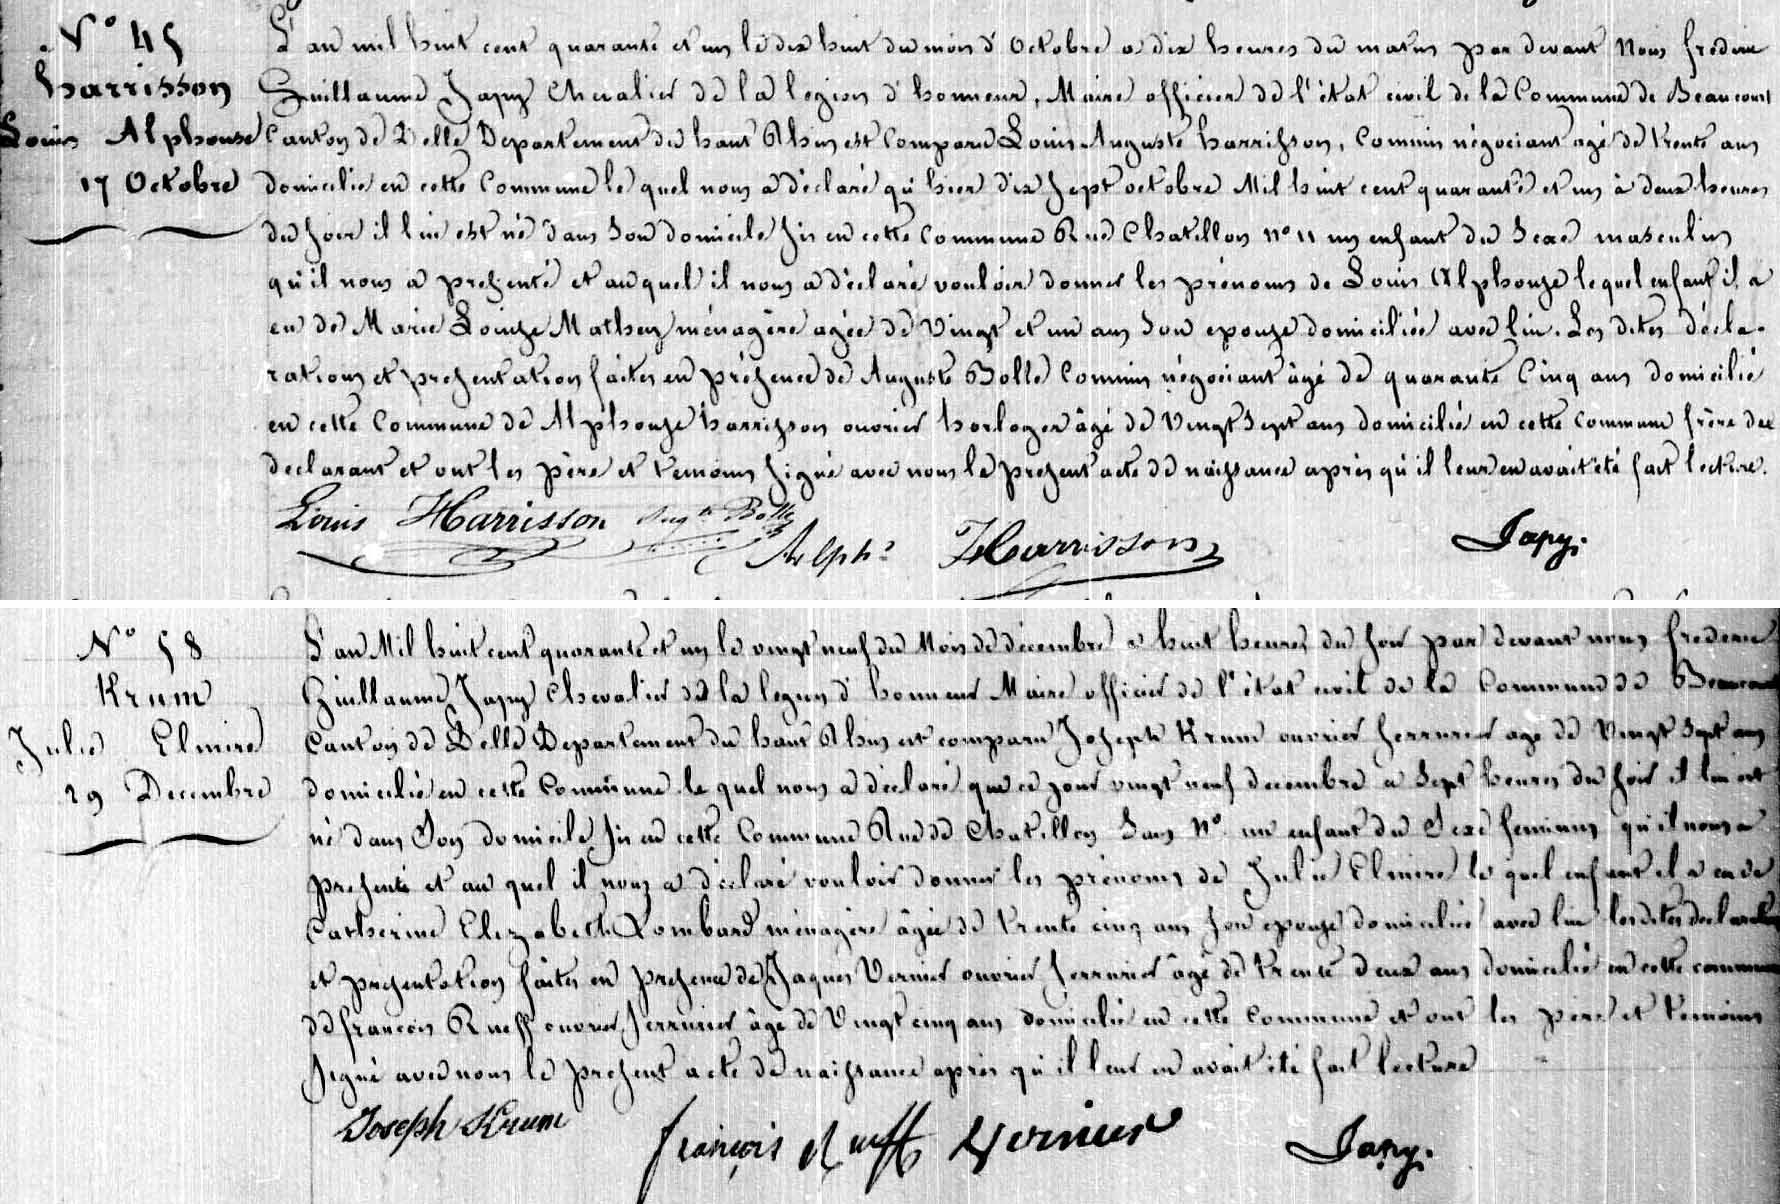 N° 45
harrisson
Louis Alphonse
17 Octobre
L'an mil huit cent quarante et un le dix huit du mois d'Octobre a dix heures du matin par devant Nous frederic
Guillaume Japy Chevalier de la legion d'honneur, Maire officier de l'état civil de la Commune de Beaucourt
Canton de Delle Departement du haut Rhin est Comparu Louis Auguste harrisson, Commis négociant agé de trente ans
domicilié en cette Commune le quel nous a déclaré qu'hier dix sept octobre Mil huit cent quarante et un à deux heures
du soir il lui est né dans son domicile sis en cette Commune Rue Chatillon n° 11 un enfant du Sexe masculin
qu'il nous a presenté et auquel il nous a déclaré vouloir donner les prénoms de Louis Alphonse lequel enfant il a
eu de Marie Louise Mathey ménagère agée de Vingt et un ans Son epouse domiciliée avec lui. Les dites décla-
rations et presentation faites en présence de Auguste Bolle Commis négociant âgé de quarante Cinq ans domicilié
en cette Commune de Alphonse harrisson ouvrier horloger âgé de Vingt Sept ans domicilié en cette Commune frère du
declarant et ont les père et temoins signé avec nous le present acte de naissance après qu'il leur en avait été fait lecture.
Louis Harrisson Augte Bolle Alphe Harrisson Japy.
N° 58
Krum
Julie Elmire
29 Decembre
L'an Mil huit cent quarante et un le vingt neuf du Mois de décembre a huit heures du soir par devant nous frederic
Guillaume Japy Chevalier de la legion d'honneur Maire officier de l'état civil de la Commune de Beaucourt
Canton de Delle Departement du haut Rhin est comparu Joseph Krum ouvrier serrurier agé de Vingt Sept ans
domicilié en cette Commune le quel nous a déclaré que ce jour vingt neuf decembre a Sept heures du soir il lui est
né dans Son domicile sis en cette Commune Rue de Chatillon Sans N° un enfant du Sexe feminin qu'il nous a
presenté et au quel il nous a déclaré vouloir donner les prénoms de Julie Elmire le quel enfant il a eu de
Catherine Elizabeth Lombard ménagère âgée de trente cinq ans son epouse domiciliée avec lui les dites declarations
et presentation faites en presence de Jaques Vernier ouvrier serrurier âgé de trente deux ans domicilié en cette commune
de francois Rueff ouvrier serrurier âgé de Vingt cinq ans domicilié en cette Commune et ont les père et temoins
signé avec nous le present acte de naissance après qu'il leur en avait été fait lecture
Joseph Krum françois Rueff Vernier Japy.